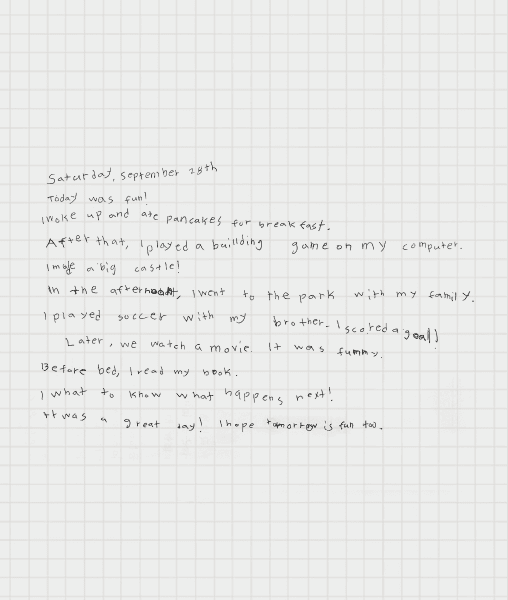 Saturday, September 28th
Today was fun!
I woke up and ate pancakes for breakfast.
After that, I played a buillding game on my computer.
I made a big castle!
In the afternoon, I went to the park with my family.
I played soccer with my brother. I scored a goal!
Later, we watch a movie. It was funny.
Before bed, I read my book.
I what to know what happens next!
It was a great day! I hope tomorrow is fun too.